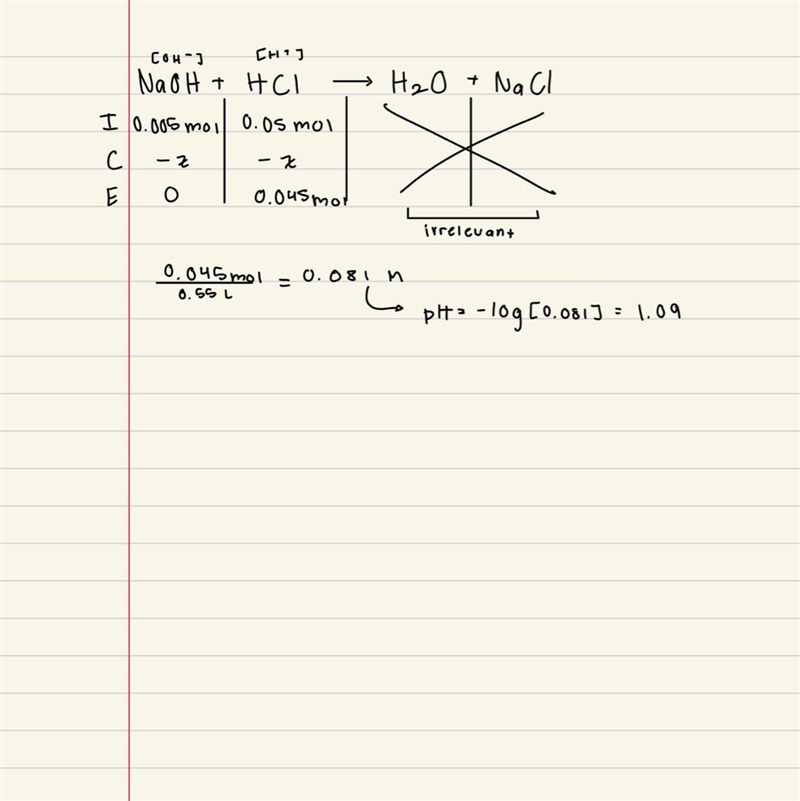 [OH-] [H+]
NaOH + HCl → H2O + NaCl
I 0.005 mol 0.05 mol
C -x -x
E 0 0.045 mol
irrelevant
0.045 mol / 0.55 L = 0.081 M
pH = -log [0.081] = 1.09